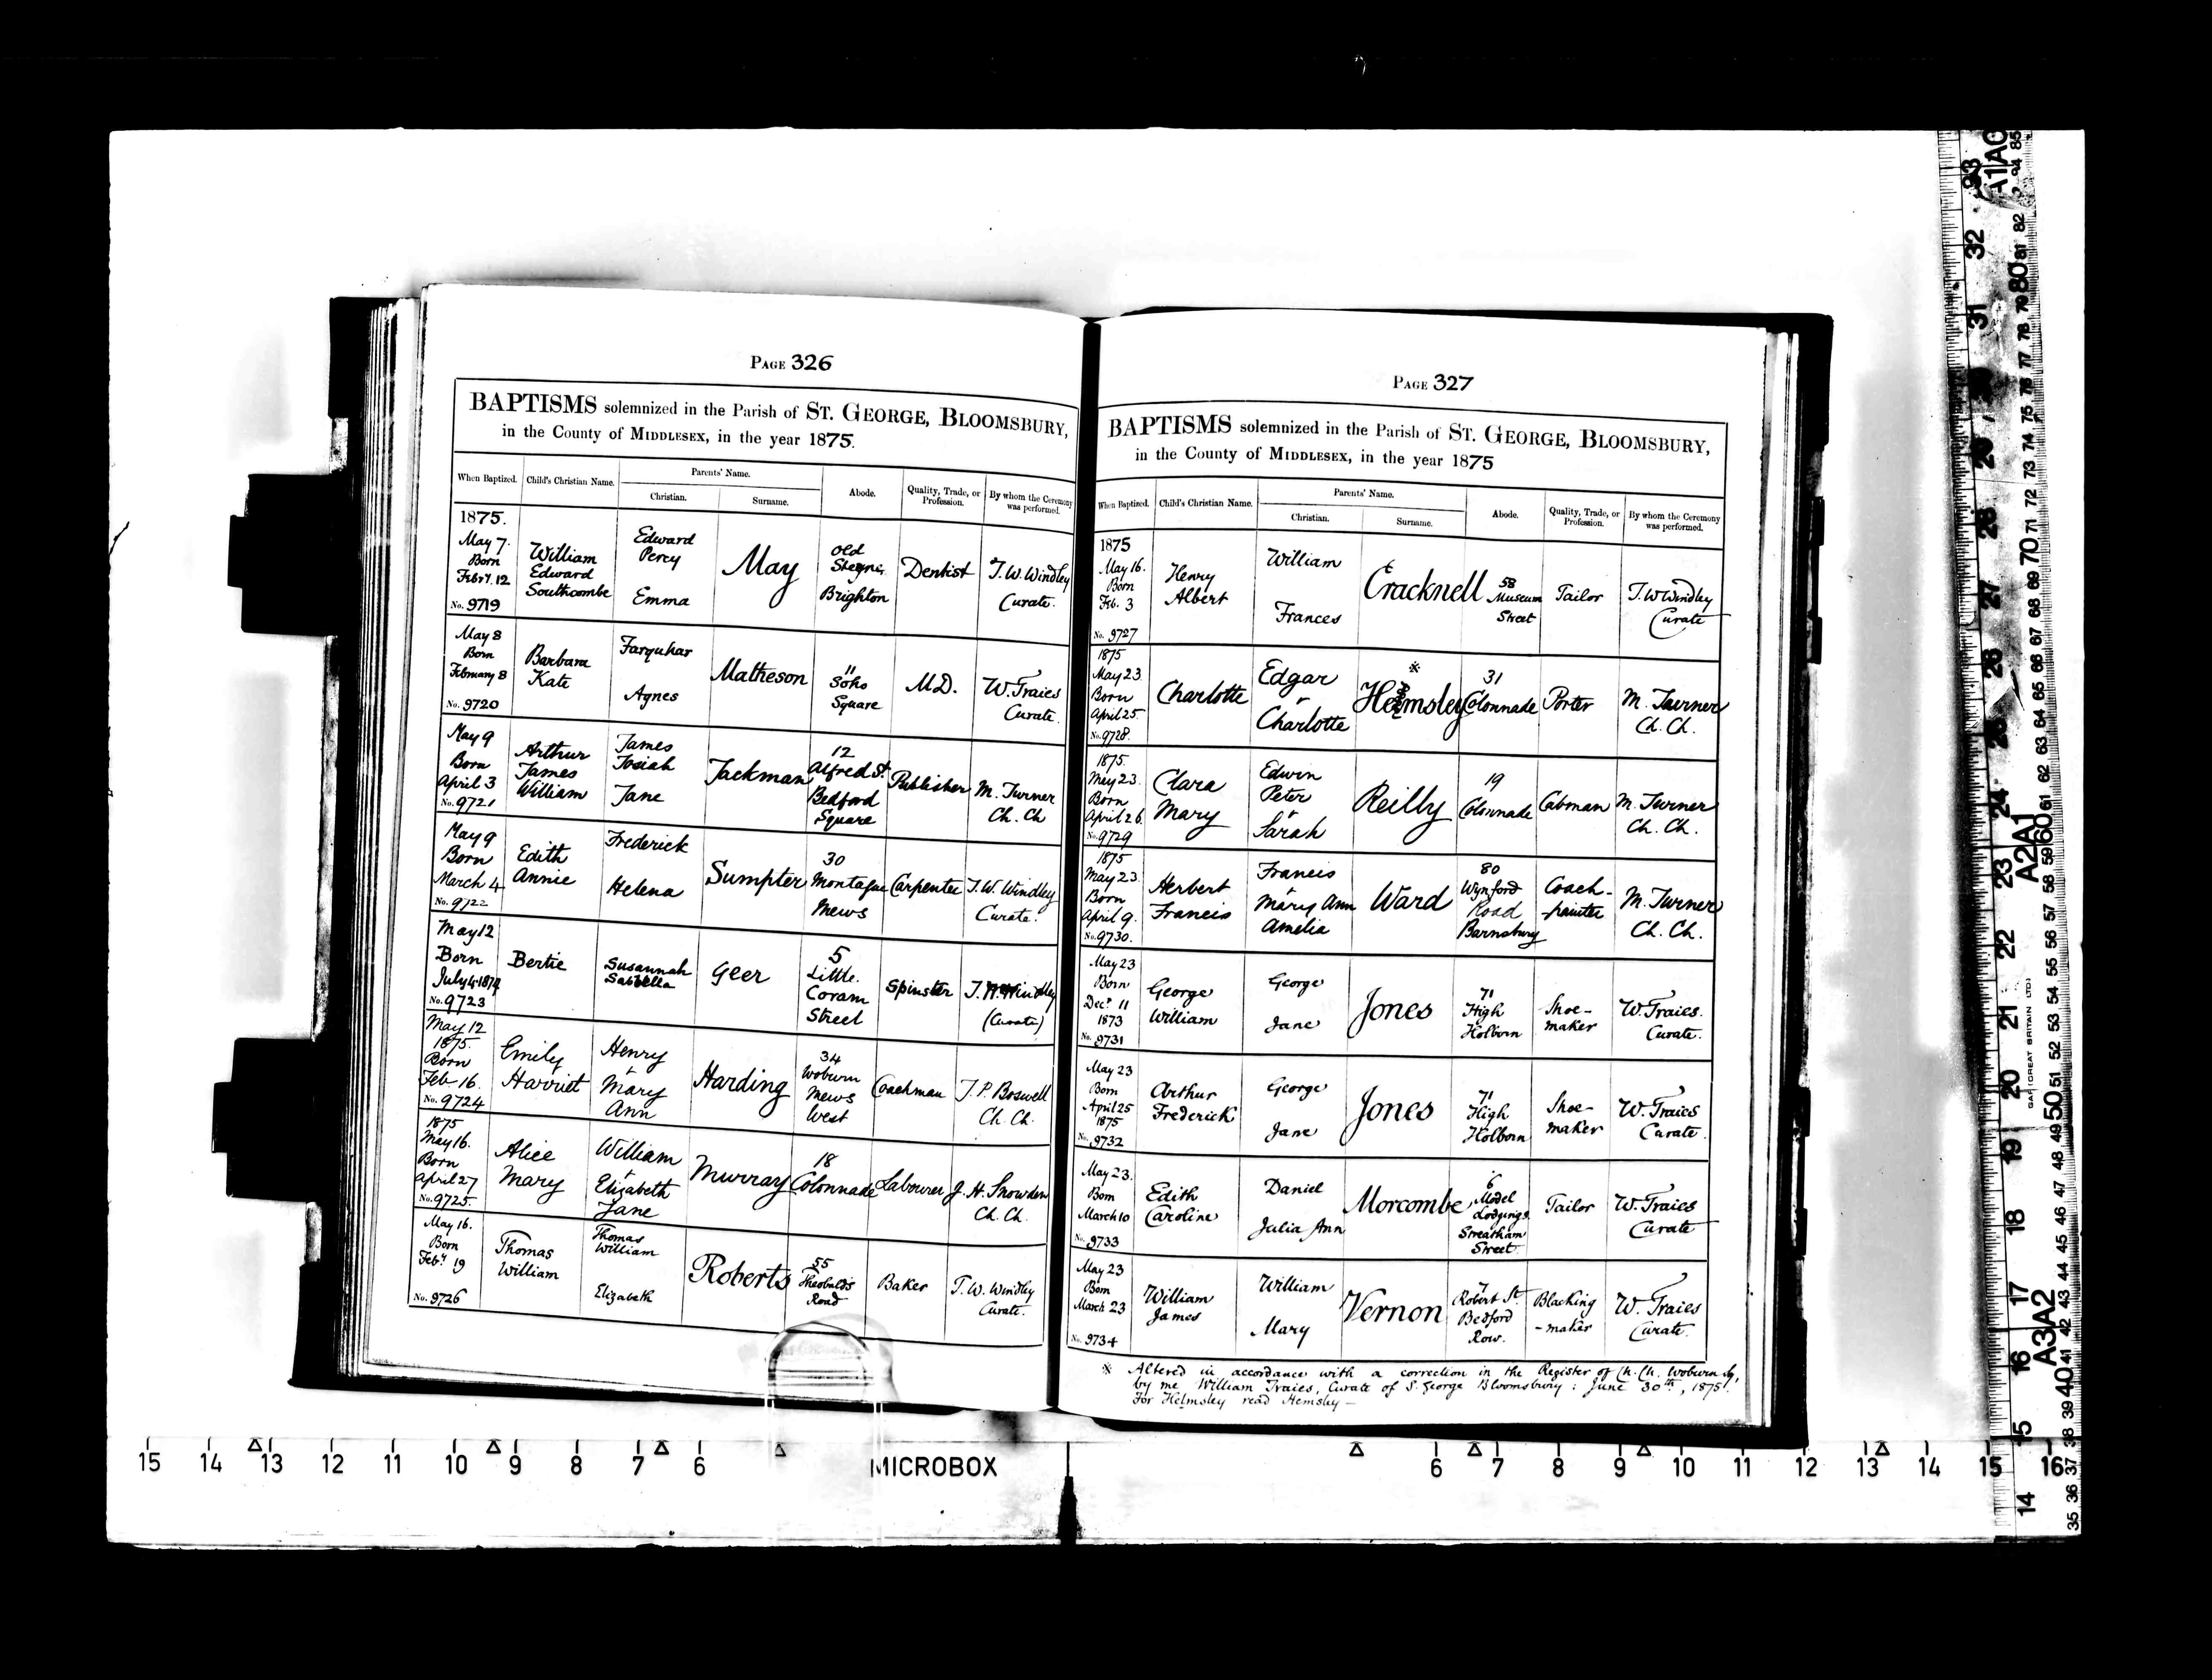 PAGE 326
BAPTISMS solemnized in the Parish of ST. GEORGE, BLOOMSBURY,
in the County of MIDDLESEX, in the year 1875.
When Baptized. Child's Christian Name. Parents' Name. Abode. Quality, Trade, or Profession. By whom the Ceremony was performed.
Christian. Surname.
1875.
May 7.
Born
Febry. 12
No. 9719
William
Edward
Southcombe
Edward
Percy
Emma
May
Old
Brighton
Dentist
T. W. Windley
Curate.
May 8
Born
February 8
No. 9720
Barbara
Kate
Farquhar
Agnes
Matheson
Soho
Square
M.D.
W. Traies
Curate.
May 9
Born
April 3
No. 9721
Arthur
James
William
James
Josiah
Jane
Jackman
12
Alfred St.
Bedford
Square
Publisher
M. Turner
Ch. Ch
May 9
Born
March 4
No. 9722
Edith
Annie
Frederick
Helena
Sumpter
30
Montague
Mews
Carpenter
T. W. Windley
Curate.
May 12
Born
July 4 1874
No. 9723
Bertie
Susannah
Geer
5
Little
Coram
Street
Spinster
T. W. Windley
(Curate)
May 12
1875.
Born
Feb. 16.
No. 9724
Emily
Harriet
Henry
+
Mary
Ann
Harding
34
Woburn
Mews
West
Coachman
T. P. Boswell
Ch. Ch.
1875
May 16.
Born
April 27
No. 9725.
Alice
Mary
William
+
Elizabeth
Jane
Murray
18
Colonnade
Labourer
J. H. Snowden
Ch. Ch.
May 16.
Born
Feby. 19
No. 9726
Thomas
William
Thomas
William
Elizabeth
Roberts
55
Theobalds
Road
Baker
T. W. Windley
Curate.
PAGE 327
BAPTISMS solemnized in the Parish of ST. GEORGE, BLOOMSBURY,
in the County of MIDDLESEX, in the year 1875
When Baptized. Child's Christian Name. Parents' Name. Abode. Quality, Trade, or Profession. By whom the Ceremony was performed.
Christian. Surname.
1875
May 16.
Born
Feb. 3
No. 9727
Henry
Albert
William
Frances
Cracknell
58
Museum
Street
Tailor
T. W Windley
Curate
1875
May 23.
Born
April 25.
No. 9728.
Charlotte
Edgar
+
Charlotte
※
Helmsley
31
Colonnade
Porter
M. Turner
Ch. Ch.
1875.
May 23.
Born
April 26.
No. 9729
Clara
Mary
Edwin
Peter
+
Sarah
Reilly
19
Colonnade
Cabman
M. Turner
Ch. Ch.
1875
May 23.
Born
April 9.
No. 9730.
Herbert
Francis
Francis
+
Mary Ann
Amelia
Ward
80
Wynford
Road
Barnsbury
Coach-
painter
M. Turner
Ch. Ch.
May 23
Born
Decr. 11
1873
No. 9731
George
William
George
Jane
Jones
71
High
Holborn
Shoe-
maker
W. Traies.
Curate.
May 23
Born
April 25
1875
No. 9732
Arthur
Frederick
George
Jane
Jones
71
High
Holborn
Shoe-
maker
W. Traies
Curate.
May 23.
Born
March 10
No. 9733
Edith
Caroline
Daniel
Julia Ann
Morcombe
6
Model
Lodgings.
Streatham
Street.
Tailor
W. Traies
Curate
May 23
Born
March 23
No. 9734
William
James
William
Mary
Vernon
7
Robert St.
Bedford
Row.
Blacking
-maker
W. Traies
Curate.
※ Altered in accordance with a correction in the Register of Ch. Ch. Woburn Sq,
by me William Traies, Curate of S. George Bloomsbury: June 30th, 1875.
For Helmsley read Hemsley—
15 14 13 12 11 10 9 8 7 6 MICROBOX 6 7 8 9 10 11 12 13 14 15 16
A1A0
A2A1
A3A2
GAF (GREAT BRITAIN LTD)